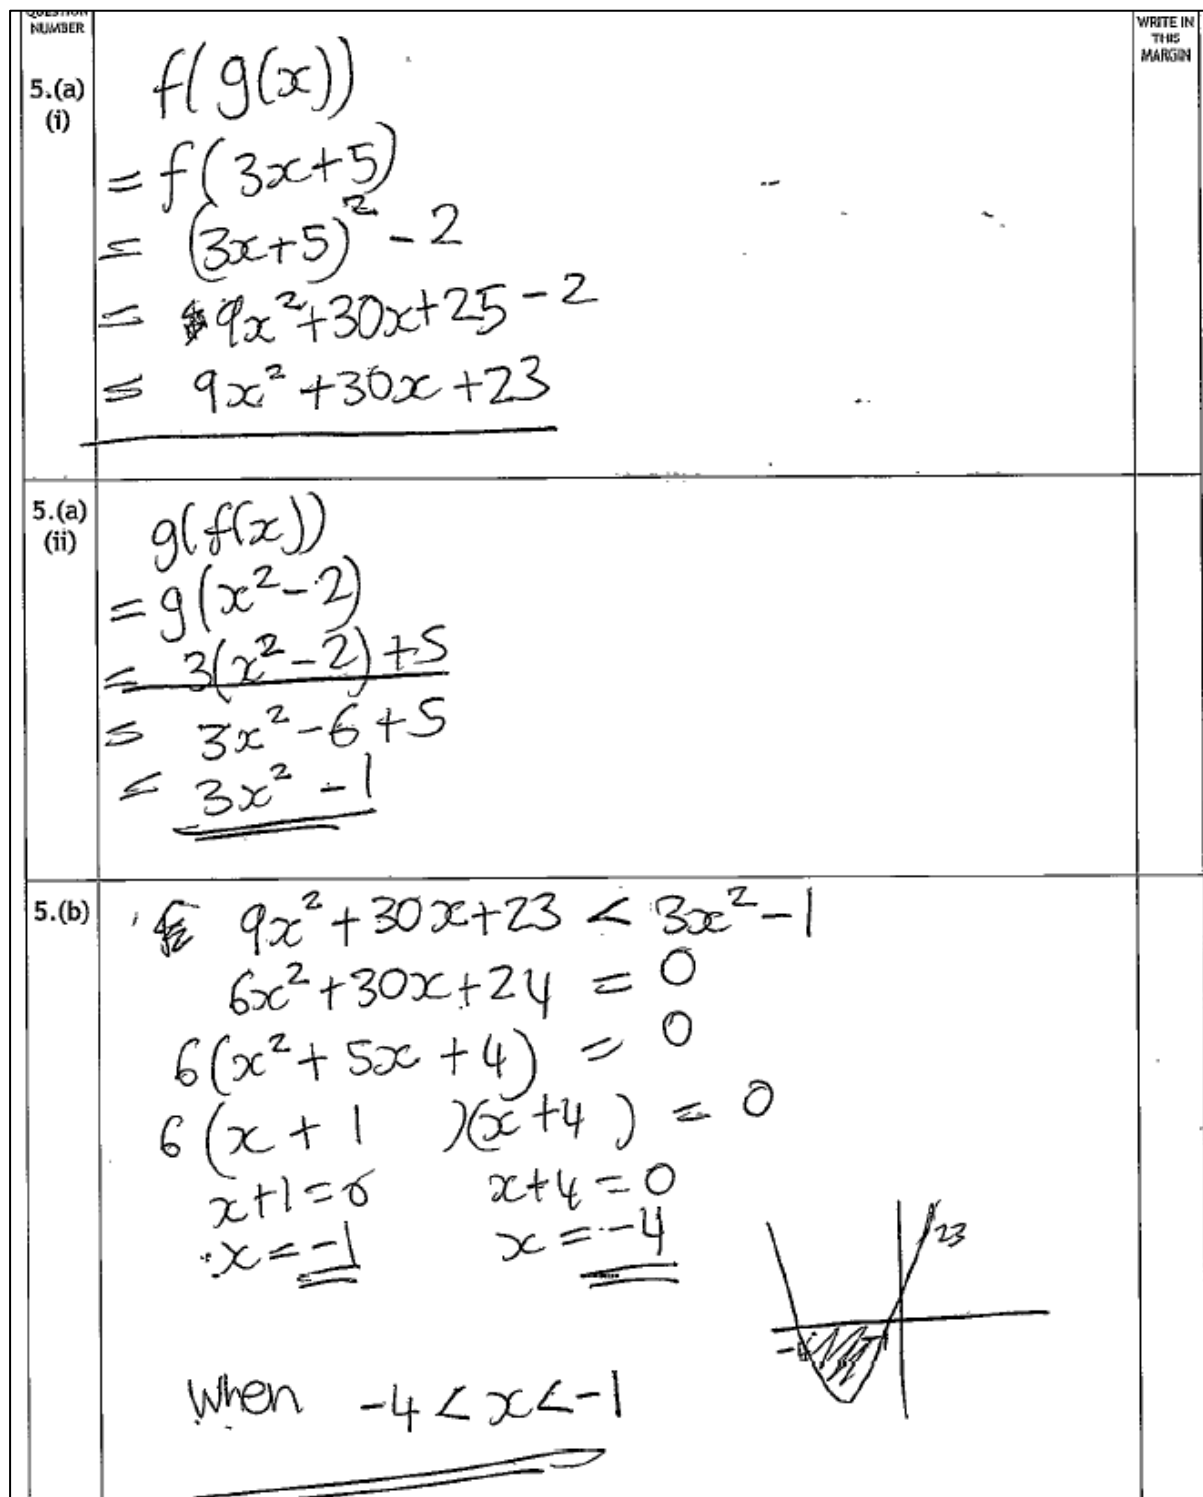 QUESTION NUMBER
WRITE IN THIS MARGIN
5.(a) (i)
f(g(x))
= f(3x+5)
= (3x+5)² - 2
= 9x²+30x+25-2
= 9x²+30x+23
5.(a) (ii)
g(f(x))
= g(x²-2)
= 3(x²-2)+5
= 3x²-6+5
= 3x²-1
5.(b)
9x²+30x+23 < 3x²-1
6x²+30x+24 = 0
6(x²+5x+4) = 0
6(x+1)(x+4) = 0
x+1=0 x+4=0
x=-1 x=-4
23
-4
When -4<x<-1